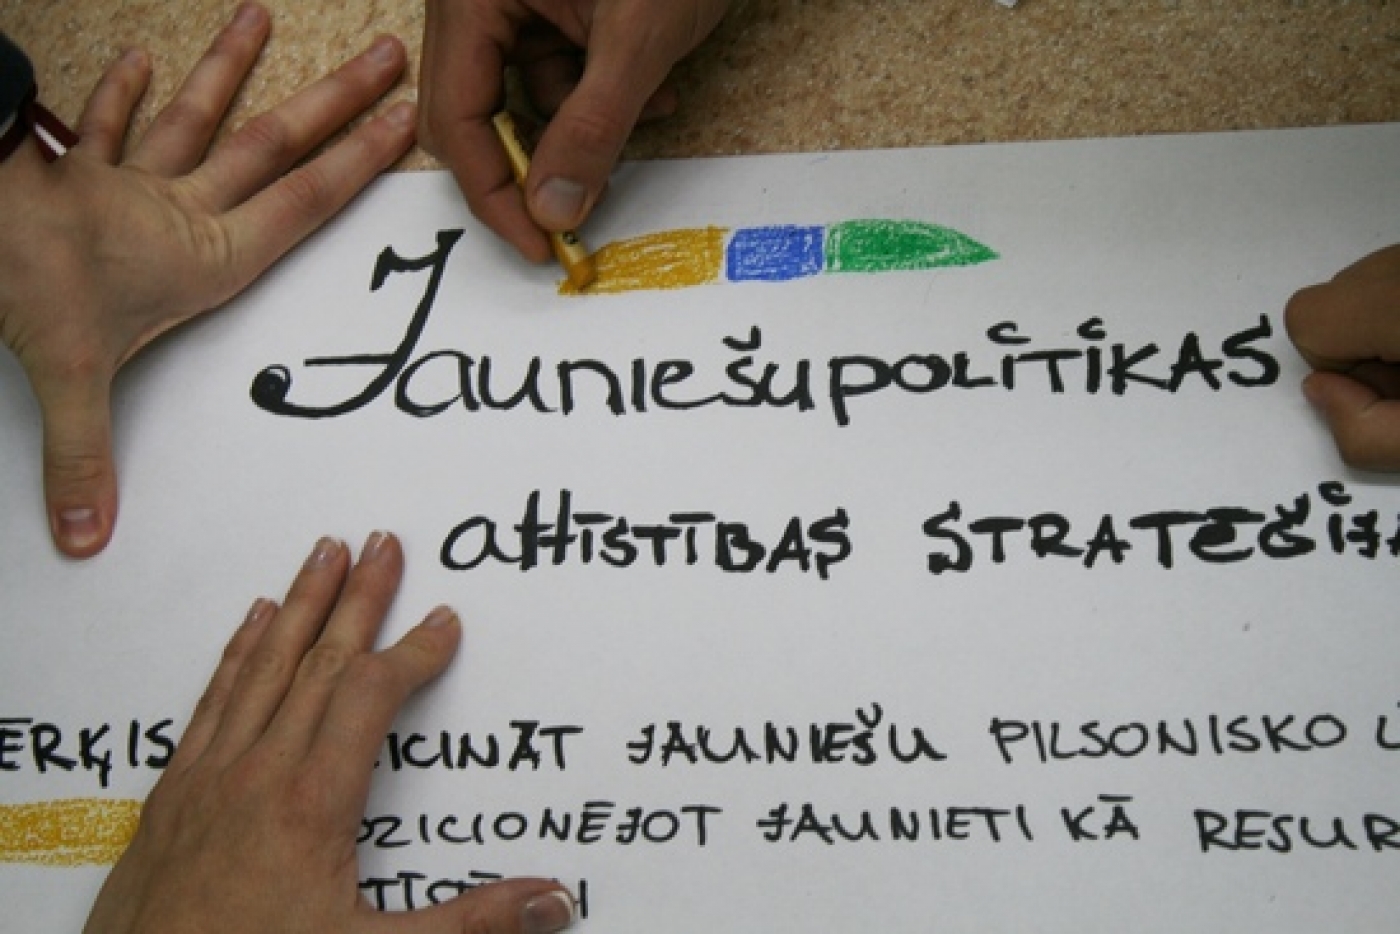 Jauniešu politikas
attīstības stratēģija
ērķis icināt jauniešu pilsonisko
ozicionējot jaunieti kā resur